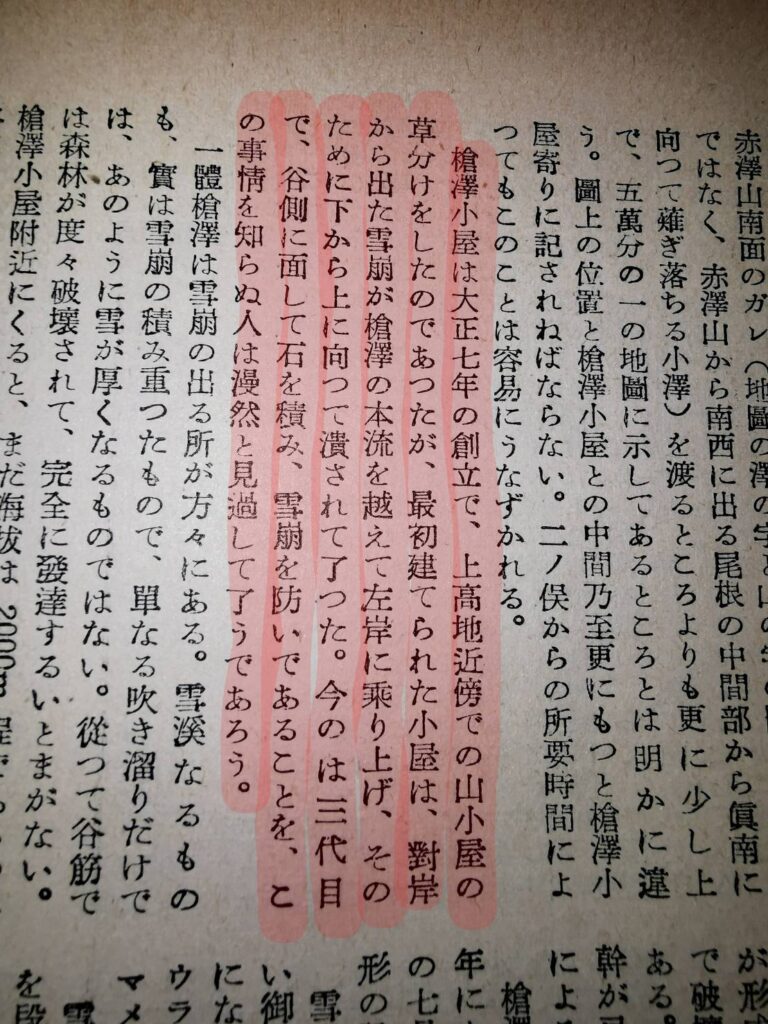 赤澤山南面のガレ（地圖の澤の字と山の字の
ではなく、赤澤山から南西に出る尾根の中間部から眞南に
向つて薙ぎ落ちる小澤）を渡るところよりも更に少し上
で、五萬分の一の地圖に示してあるところとは明かに違
う。圖上の位置と槍澤小屋との中間乃至更にもつと槍澤小
屋寄りに記されねばならない。二ノ俣からの所要時間によ
つてもこのことは容易にうなずかれる。
槍澤小屋は大正七年の創立で、上高地近傍での山小屋の
草分けをしたのであつたが、最初建てられた小屋は、對岸
から出た雪崩が槍澤の本流を越えて左岸に乘り上げ、その
ために下から上に向つて潰されて了つた。今のは三代目
で、谷側に面して石を積み、雪崩を防いであることを、こ
の事情を知らぬ人は漫然と見過して了うであろう。
一體槍澤は雪崩の出る所が方々にある。雪溪なるもの
も、實は雪崩の積み重つたもので、單なる吹き溜りだけで
は、あのように雪が厚くなるものではない。從つて谷筋で
は森林が度々破壞されて、完全に發達するいとまがない。
槍澤小屋附近にくると、まだ海拔は 2000m 程で
が形成
で破壞
ある。
幹が
によ
槍澤
年に
の七
形の
雪
い御
にな
ウラ
マメ
雪
を段